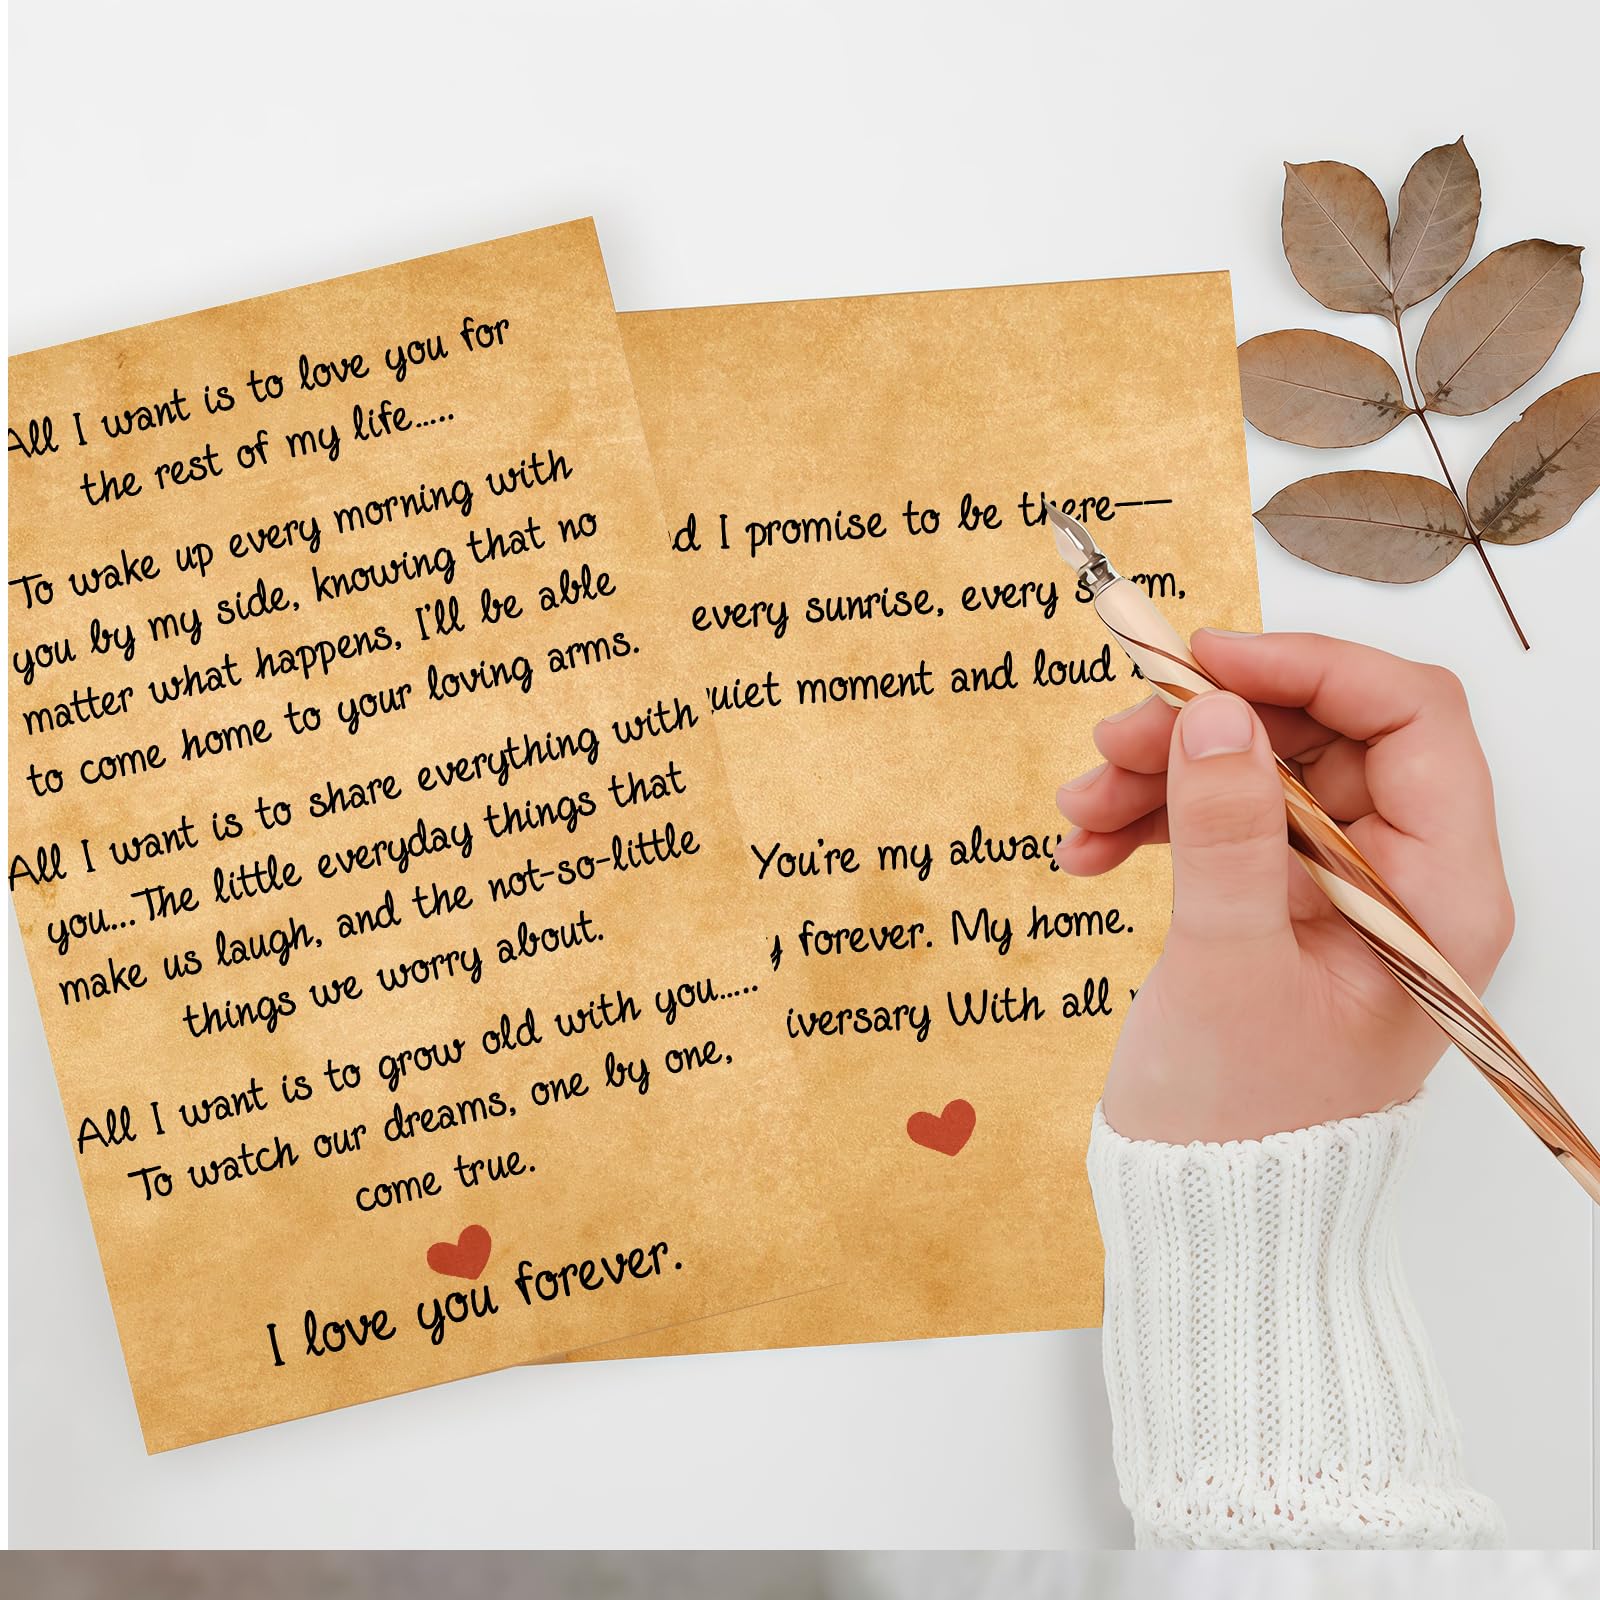 All I want is to love you for
the rest of my life.....
To wake up every morning with
you by my side, knowing that no
matter what happens, I'll be able
to come home to your loving arms.
All I want is to share everything with
you...The little everyday things that
make us laugh, and the not-so-little
things we worry about.
All I want is to grow old with you.....
To watch our dreams, one by one,
come true.
I love you forever.
I promise to be there——
every sunrise, every
moment and loud
You're my
forever. My home.
With all